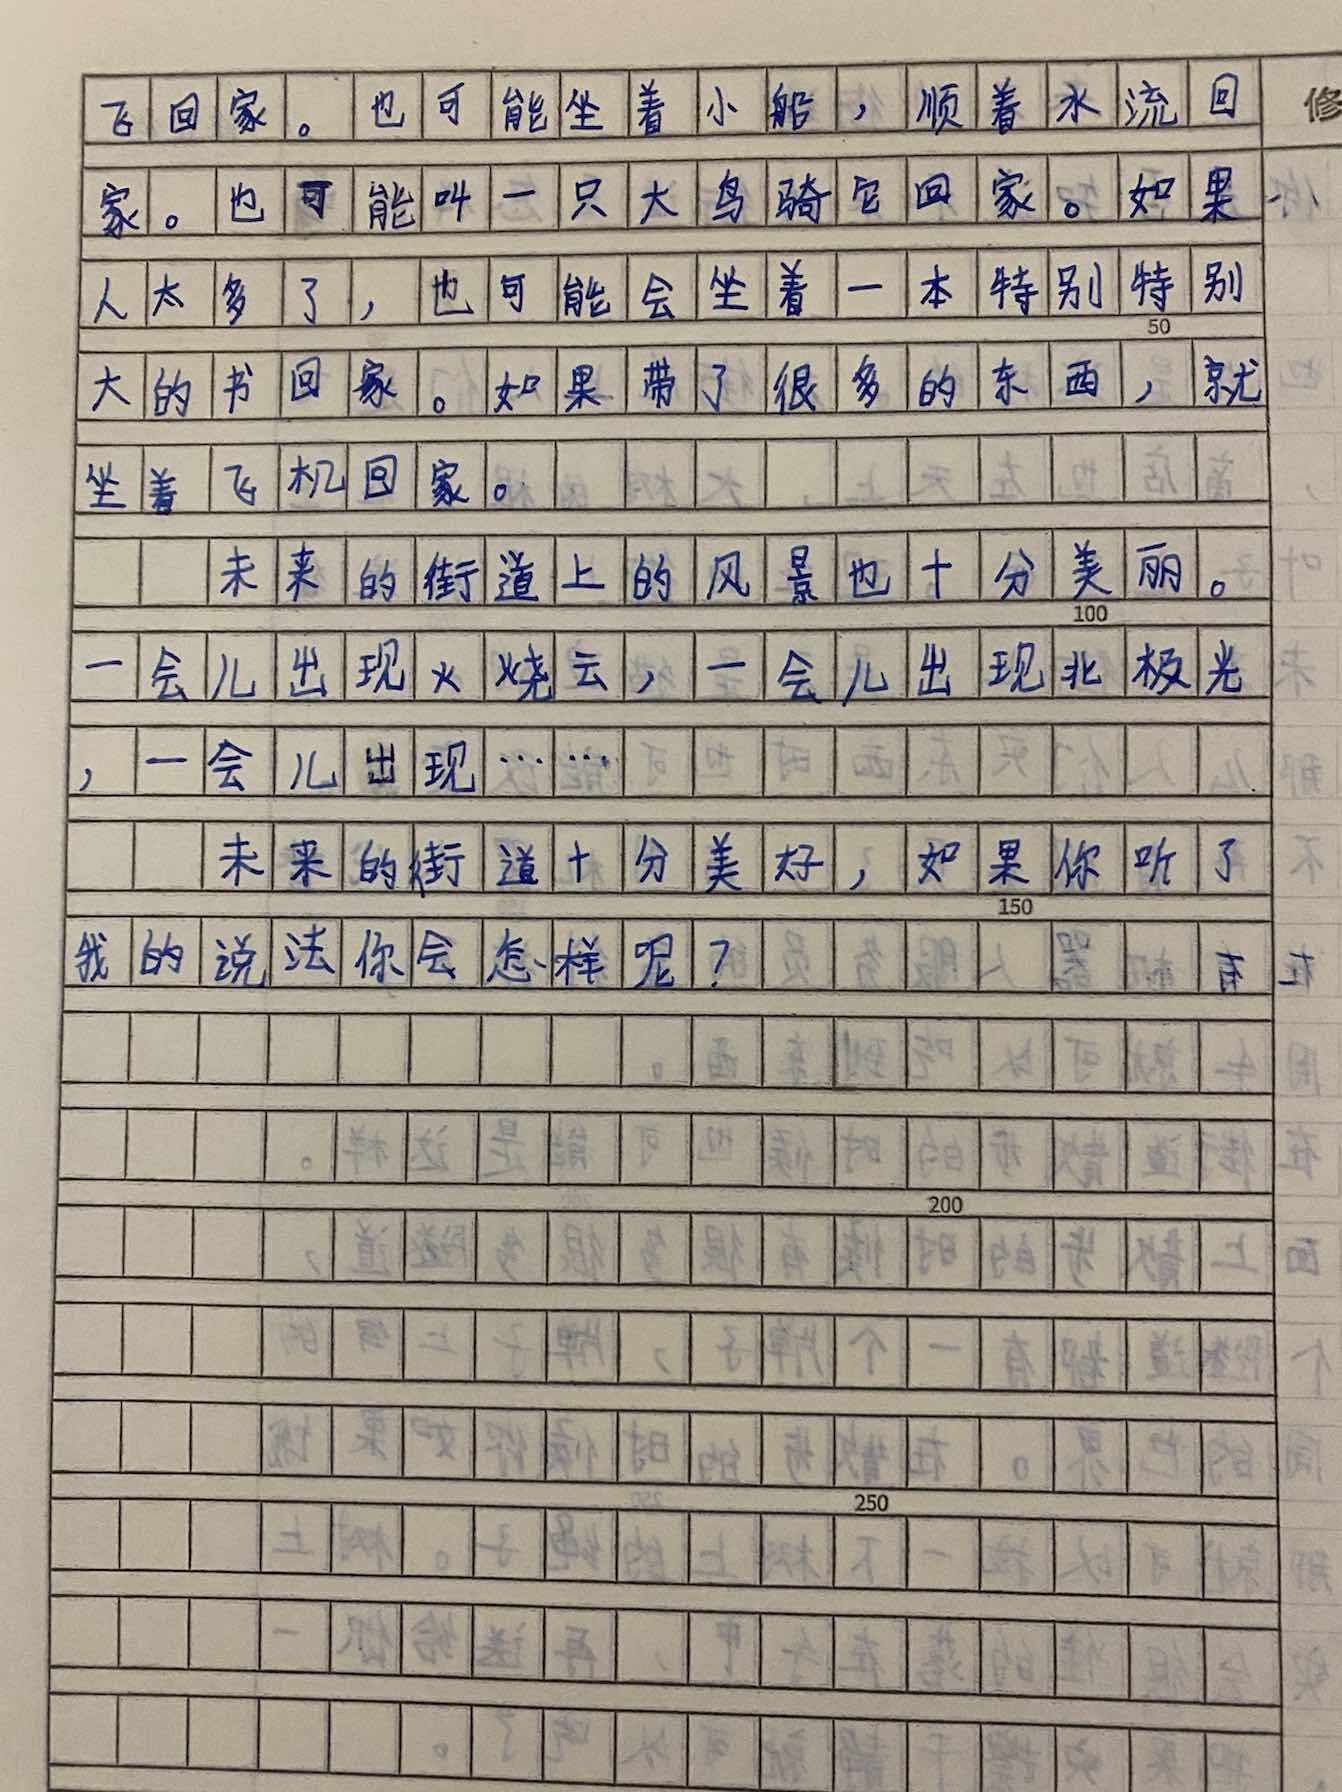 飞回家。也可能坐着小船，顺着水流回
修
家。也可能叫一只大鸟骑它回家。如果
人太多了，也可能会坐着一本特别特别
50
大的书回家。如果带了很多的东西，就
坐着飞机回家。
未来的街道上的风景也十分美丽。
100
一会儿出现火烧云，一会儿出现北极光
，一会儿出现……
未来的街道十分美好，如果你听了
150
我的说法你会怎样呢？
200
250